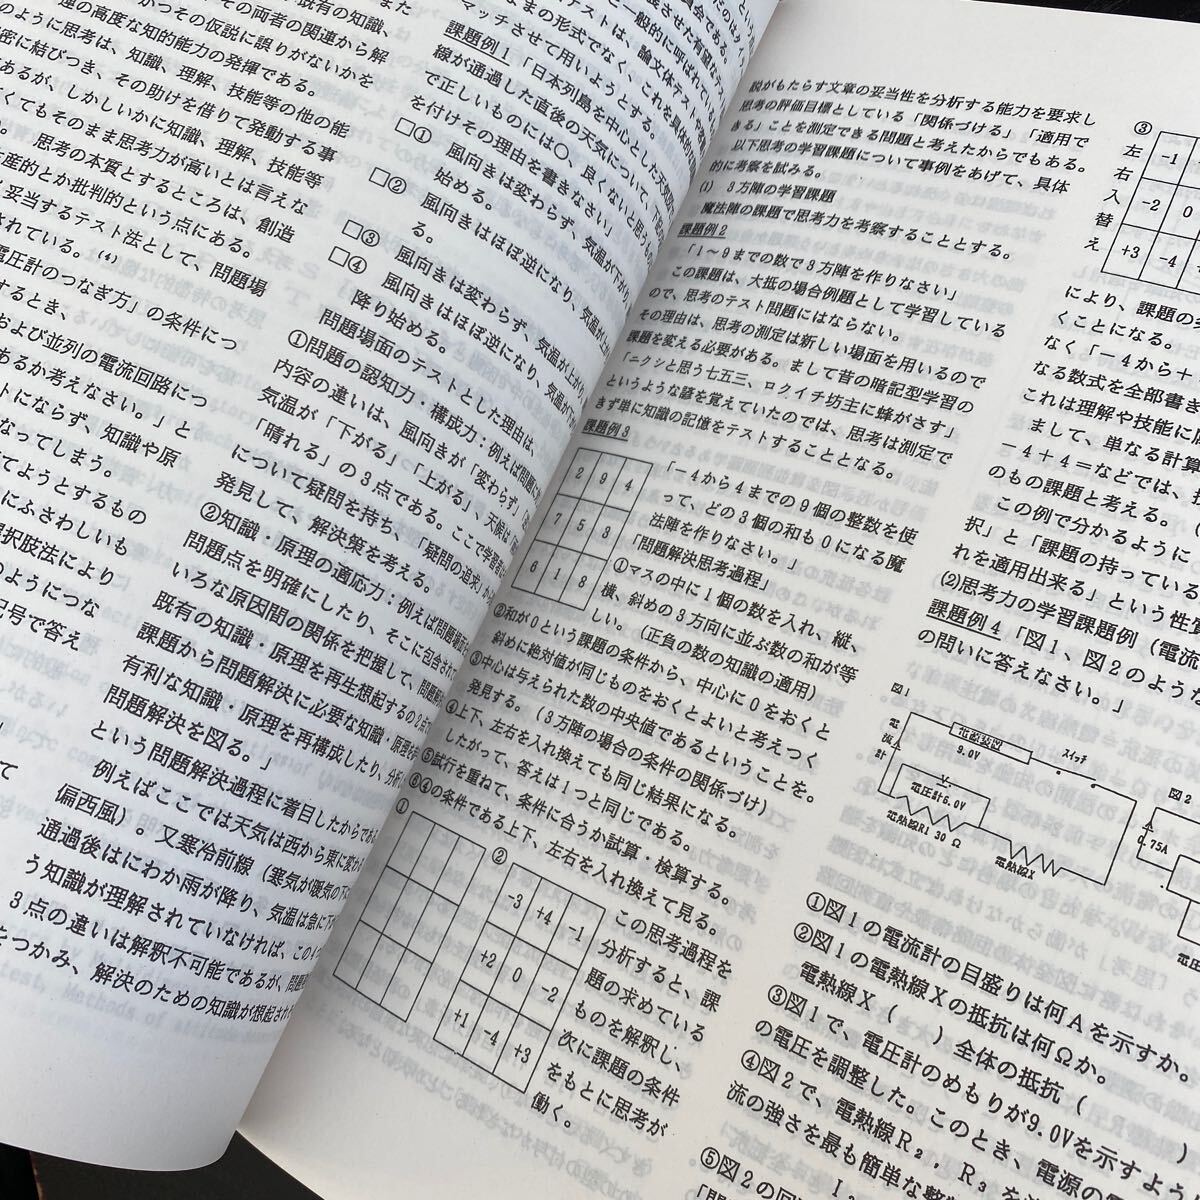 既有の知識、
その両者の関連から解
かつその仮説に誤りがないかを
連の高度な知的能力の発揮である。
のように思考は、知識、理解、技能等の他の能
密に結びつき、その助けを借りて発動する事
あるが、しかしいかに知識、理解、技能等
くてもそのまま思考力が高いとは言えな
思考の本質とするところは、創造
産的とか批判的という点にある。
妥当するテスト法として、問題場
されている。(4)
電圧計のつなぎ方」の条件につ
するとき、
および並列の電流回路につ
あるか考えなさい。」と
トにならず、知識や原
なってしまう。
てようとするもの
にふさわしいも
択肢法により
のようにつな
号で答え
マッチさせて用いようとする。
課題例1「日本列島を中心とした天気図
線が通過した直後の天気について、下
で正しいものには○、良くないと思うもの
を付けその理由を書きなさい」
□① 風向きは変わらず、気温が下がり、
始める。
□② 風向きはほぼ逆になり、気温が
る。
□③ 風向きは変わらず、気温が上がり、
□④ 風向きはほぼ逆になり、気温が下が
降り始める。
問題場面のテストとした理由は、
①問題の認知力・構成力:例えば問題に
内容の違いは、風向きが「変わらず」
気温が「下がる」「上がる」、天候は
「晴れる」の3点である。ここで学習者
について疑問を持ち、「疑問の追求」か
発見して、解決策を考える。
②知識・原理の適応力:例えば問題場面
問題点を明確にしたり、そこに包含され
いろな原因間の関係を把握して、問題解
既有の知識・原理を再生想起するの2点
課題から問題解決に必要な知識・原理を
有利な知識・原理を再構成したり、分析
問題解決を図る。」
という問題解決過程に着目したからであ
例えばここでは天気は西から東に変わ
偏西風)。又寒冷前線(寒気が暖気の下に
通過後はにわか雨が降り、気温は急に下
う知識が理解されていなければ、この4つ
3点の違いは解釈不可能であるが、問題
をつかみ、解決のための知識が想起され
説がもたらす文章の妥当性を分析する能力を要求し
思考の評価目標としている「関係づける」「適用で
きる」ことを測定できる問題と考えたからでもある。
以下思考の学習課題について事例をあげて、具体
的に考察を試みる。
(1) 3方陣の学習課題
魔法陣の課題で思考力を考察することとする。
課題例2
「1~9までの数で3方陣を作りなさい」
この課題は、大抵の場合例題として学習している
ので、思考のテスト問題にはならない。
その理由は、思考の測定は新しい場面を用いるので
課題を変える必要がある。まして昔の暗記型学習の
「ニクシと思う七五三、ロクイチ坊主に蜂がさす」
というような諺を覚えていたのでは、思考は測定で
きず単に知識の記憶をテストすることとなる。
課題例3
2 9 4
7 5 3
6 1 8
「-4から4までの9個の整数を使
って、どの3個の和も0になる魔
法陣を作りなさい。」
「問題解決思考過程」
①マスの中に1個の数を入れ、縦、
横、斜めの3方向に並ぶ数の和が等
しい。(正負の数の知識の適用)
②和が0という課題の条件から、中心に0をおくと
斜めに絶対値が同じものをおくとよいと考えつく
③中心は与えられた数の中央値であるということを
発見する。(3方陣の場合の条件の関係づけ)
④上下、左右を入れ換えても同じ結果になる。
したがって、答えは1つと同じである。
⑤試行を重ねて、条件に合うか試算・検算する。
⑥④の条件である上下、左右を入れ換えて見る。
①
②
-3 +4 -1
+2 0 -2
+1 -4 +3
この思考過程を
分析すると、課
題の求めている
ものを解釈し、
次に課題の条件
をもとに思考が
働く。
③
左右入替え
-1
-2 0
+3 -4
により、課題の
くことになる。
なく「-4から+
なる数式を全部書き
これは理解や技能に
まして、単なる計算
-4+4=などでは、
のもの課題と考える。
この例で分かるように
択」と「課題の持っている
れを適用出来る」という性
(2)思考力の学習課題例(電流
課題例4「図1、図2のような
の問いに答えなさい。」
図1
電流計
電源装置
9.0V
スイッチ
V
電圧計6.0V
電熱線R1 30Ω
電熱線X
図2
0.75A
①図1の電流計の目盛りは何Aを示すか。
②図1の電熱線Xの抵抗は何Ωか。
電熱線X( )全体の抵抗( )
③図1で、電圧計のめもりが9.0Vを示すよう
の電圧を調整した。このとき、電源の
④図2で、電熱線R2,R3を
流の強さを最も簡単な整
⑤図2の回